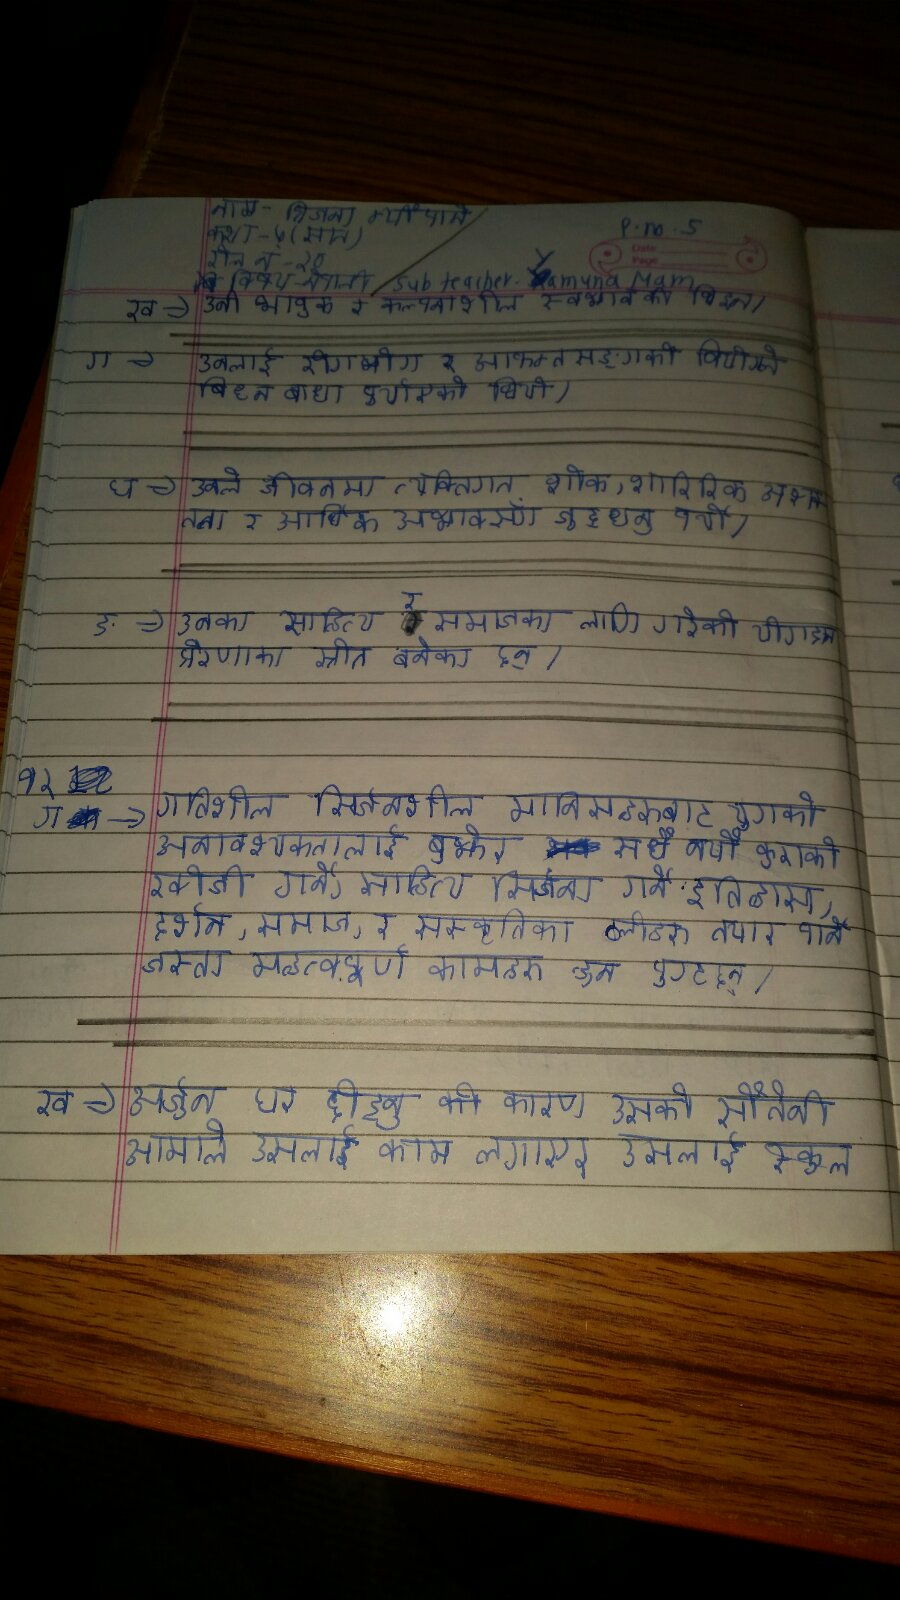 नाम- सिजना न्यौपाने
कक्षा-७(सात)
रोल नं.-२०
विषय-नेपाली sub teacher. Yamuna Mam
P.no.5
Date
Page
ख ⇒ उनी भावुक र कल्पनाशील स्वभावका थिइन्।
ग ⇒ उनलाई रोगभोग र आफन्तसङ्गको वियोगले
बिघ्न बाधा पुर्याएको थियो।
घ ⇒ उनले जीवनमा व्यक्तिगत शोक, शारिरिक
र आर्थिक अभावसँग जुद्दधनु पर्यो।
ङ. ⇒ उनका साहित्य र समाजका लागि गरेको योगदान
प्रेरणाका स्रोत बनेका छन्।
१२
ग ⇒ गतिशील सिर्जनशील मानिसहरूबाट युगको
अनावश्यकतालाई बुझेर सधैँ नयाँ कुराको
खोजी गर्ने, साहित्य सिर्जना गर्ने इतिहास,
दर्शन, समाज, र संस्कृतिका तयार पार्ने
जस्ता महत्वपूर्ण कामहरू हुन पुग्दछन्।
ख ⇒ अर्जुन घर छोड्नु को कारण उसको सौतेनी
आमाले उसलाई काम लगाएर उसलाई स्कुल